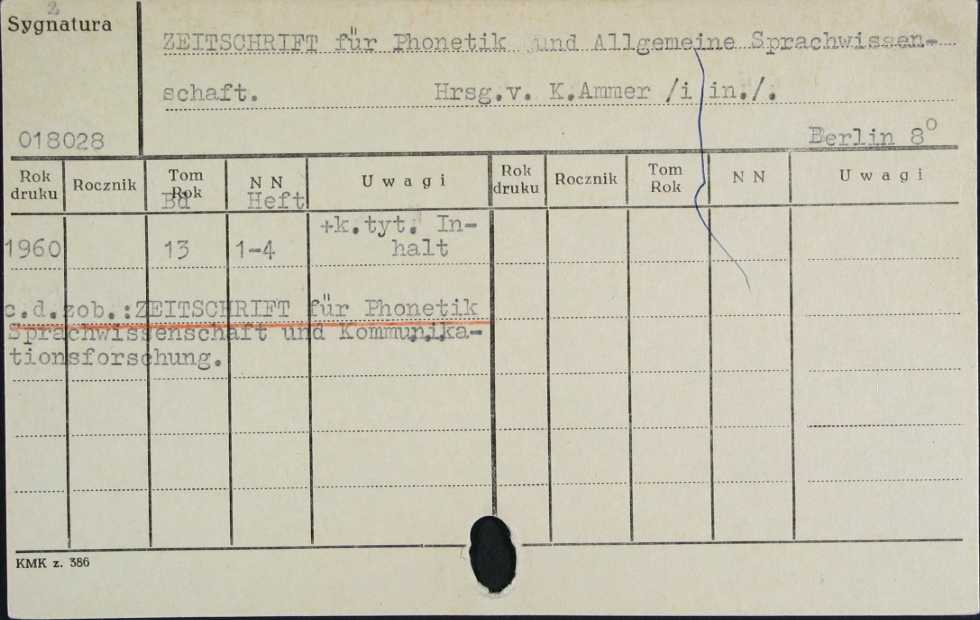 2
Sygnatura
ZEITSCHRIFT für Phonetik und Allgemeine Sprachwissen-
schaft. Hrsg.v. K.Ammer /i in./.
018028
Berlin 8⁰
Rok druku Rocznik Tom Rok N N U w a g i Rok druku Rocznik Tom Rok N N U w a g i
Bd Heft
+k.tyt. In-
1960 13 1-4 halt
c.d.zob.:ZEITSCHRIFT für Phonetik
Sprachwissenschaft und Kommunika-
tionsforschung.
KMK z. 386